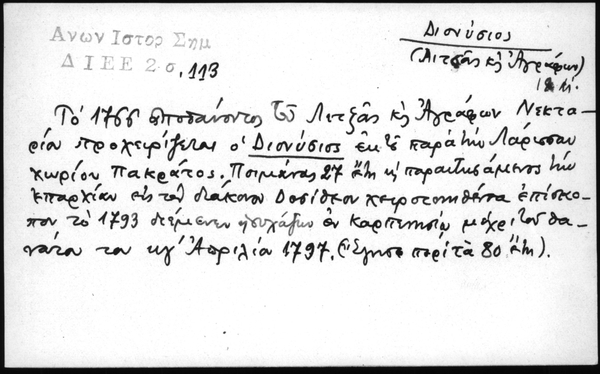 Ανων Ιστορ Σημ
Δ ΙΕΕ 2 σ. 113
Διονύσιος
(Λιτζᾶς κὴ Ἀγράφων)
Τὸ 1766 ἀποθανόντος τοῦ Λιτζᾶς κὴ Ἀγράφων Νεκτα-
ρίου προχειρίζεται ὁ Διονύσιος ἐκ τοῦ παρὰ τὴν Λάρισσαν
χωρίου Πακράτος. Ποιμάνας 27 ἔτη κὴ παραιτησάμενος τὴν
ἐπαρχίαν εἰς τὸν διάκονον Δοσίθεον χειροτονηθέντα ἐπίσκο-
πον τὸ 1793 διέμενεν ἡσυχάζων ἐν Καρπενησίῳ μέχρι τοῦ θα-
νάτου του κγ' Ἀπριλίου 1797. (Ἔζησε περὶ τὰ 80 ἔτη).